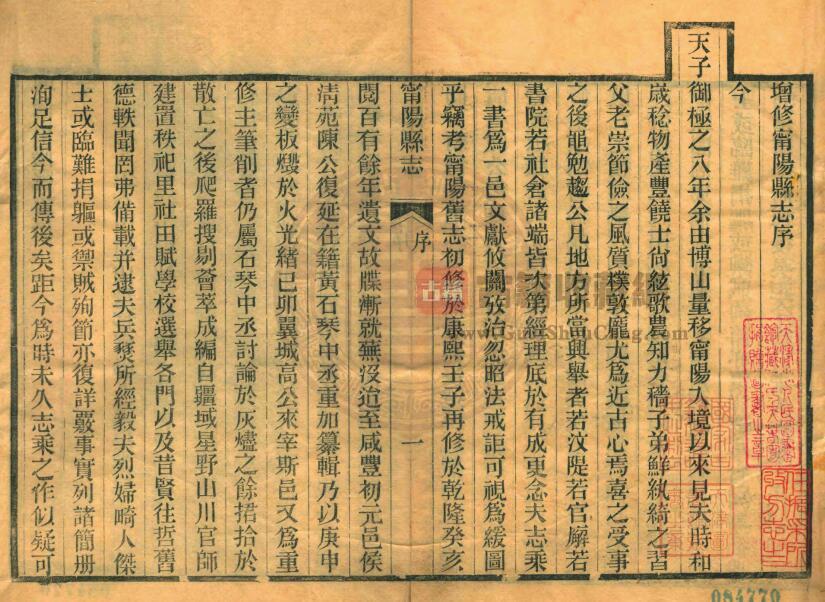 增修甯陽縣志序
今
天子御極之八年余由博山量移甯陽入境以來見夫時和
歲稔物產豐饒士尚絃歌農知力穡子弟鮮紈綺之習
父老崇節儉之風質樸敦龐尤為近古心焉喜之受事
之後黽勉趨公凡地方所當興舉者若汶隄若官廨若
書院若社倉諸端皆次第經理底於有成更念夫志乘
一書為一邑文獻攸關攷治忽昭法戒詎可視為緩圖
乎竊考甯陽舊志初修於康熙壬子再修於乾隆癸亥
甯陽縣志
序
一
閱百有餘年遺文故牒漸就蕪沒迨至咸豐初元邑侯
清苑陳公復延在籍黃石琴中丞重加纂輯乃以庚申
之變板燬於火光緒己卯翼城高公來宰斯邑又為重
修主筆削者仍屬石琴中丞討論於灰燼之餘捃拾於
散亡之後爬羅搜剔薈萃成編自疆域星野山川官師
建置秩祀里社田賦學校選舉各門以及昔賢往哲舊
德軼聞罔弗備載并逮夫兵燹所經毅夫烈婦畸人傑
士或臨難捐軀或禦賊殉節亦復詳覈事實列諸簡冊
洵足信今而傳後矣距今為時未久志乘之作似疑可
古籍
084770